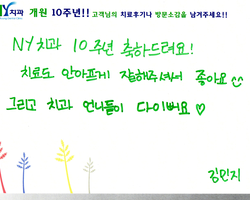 NY치과 개원 10주년!! 고객님의 치료후기나 방문소감을 남겨주세요!!
NY치과 10주년 축하드려요!
치료도 안아프게 잘해주셔서 좋아요
그리고 치과 언니들이 다이뻐요♡
김민지